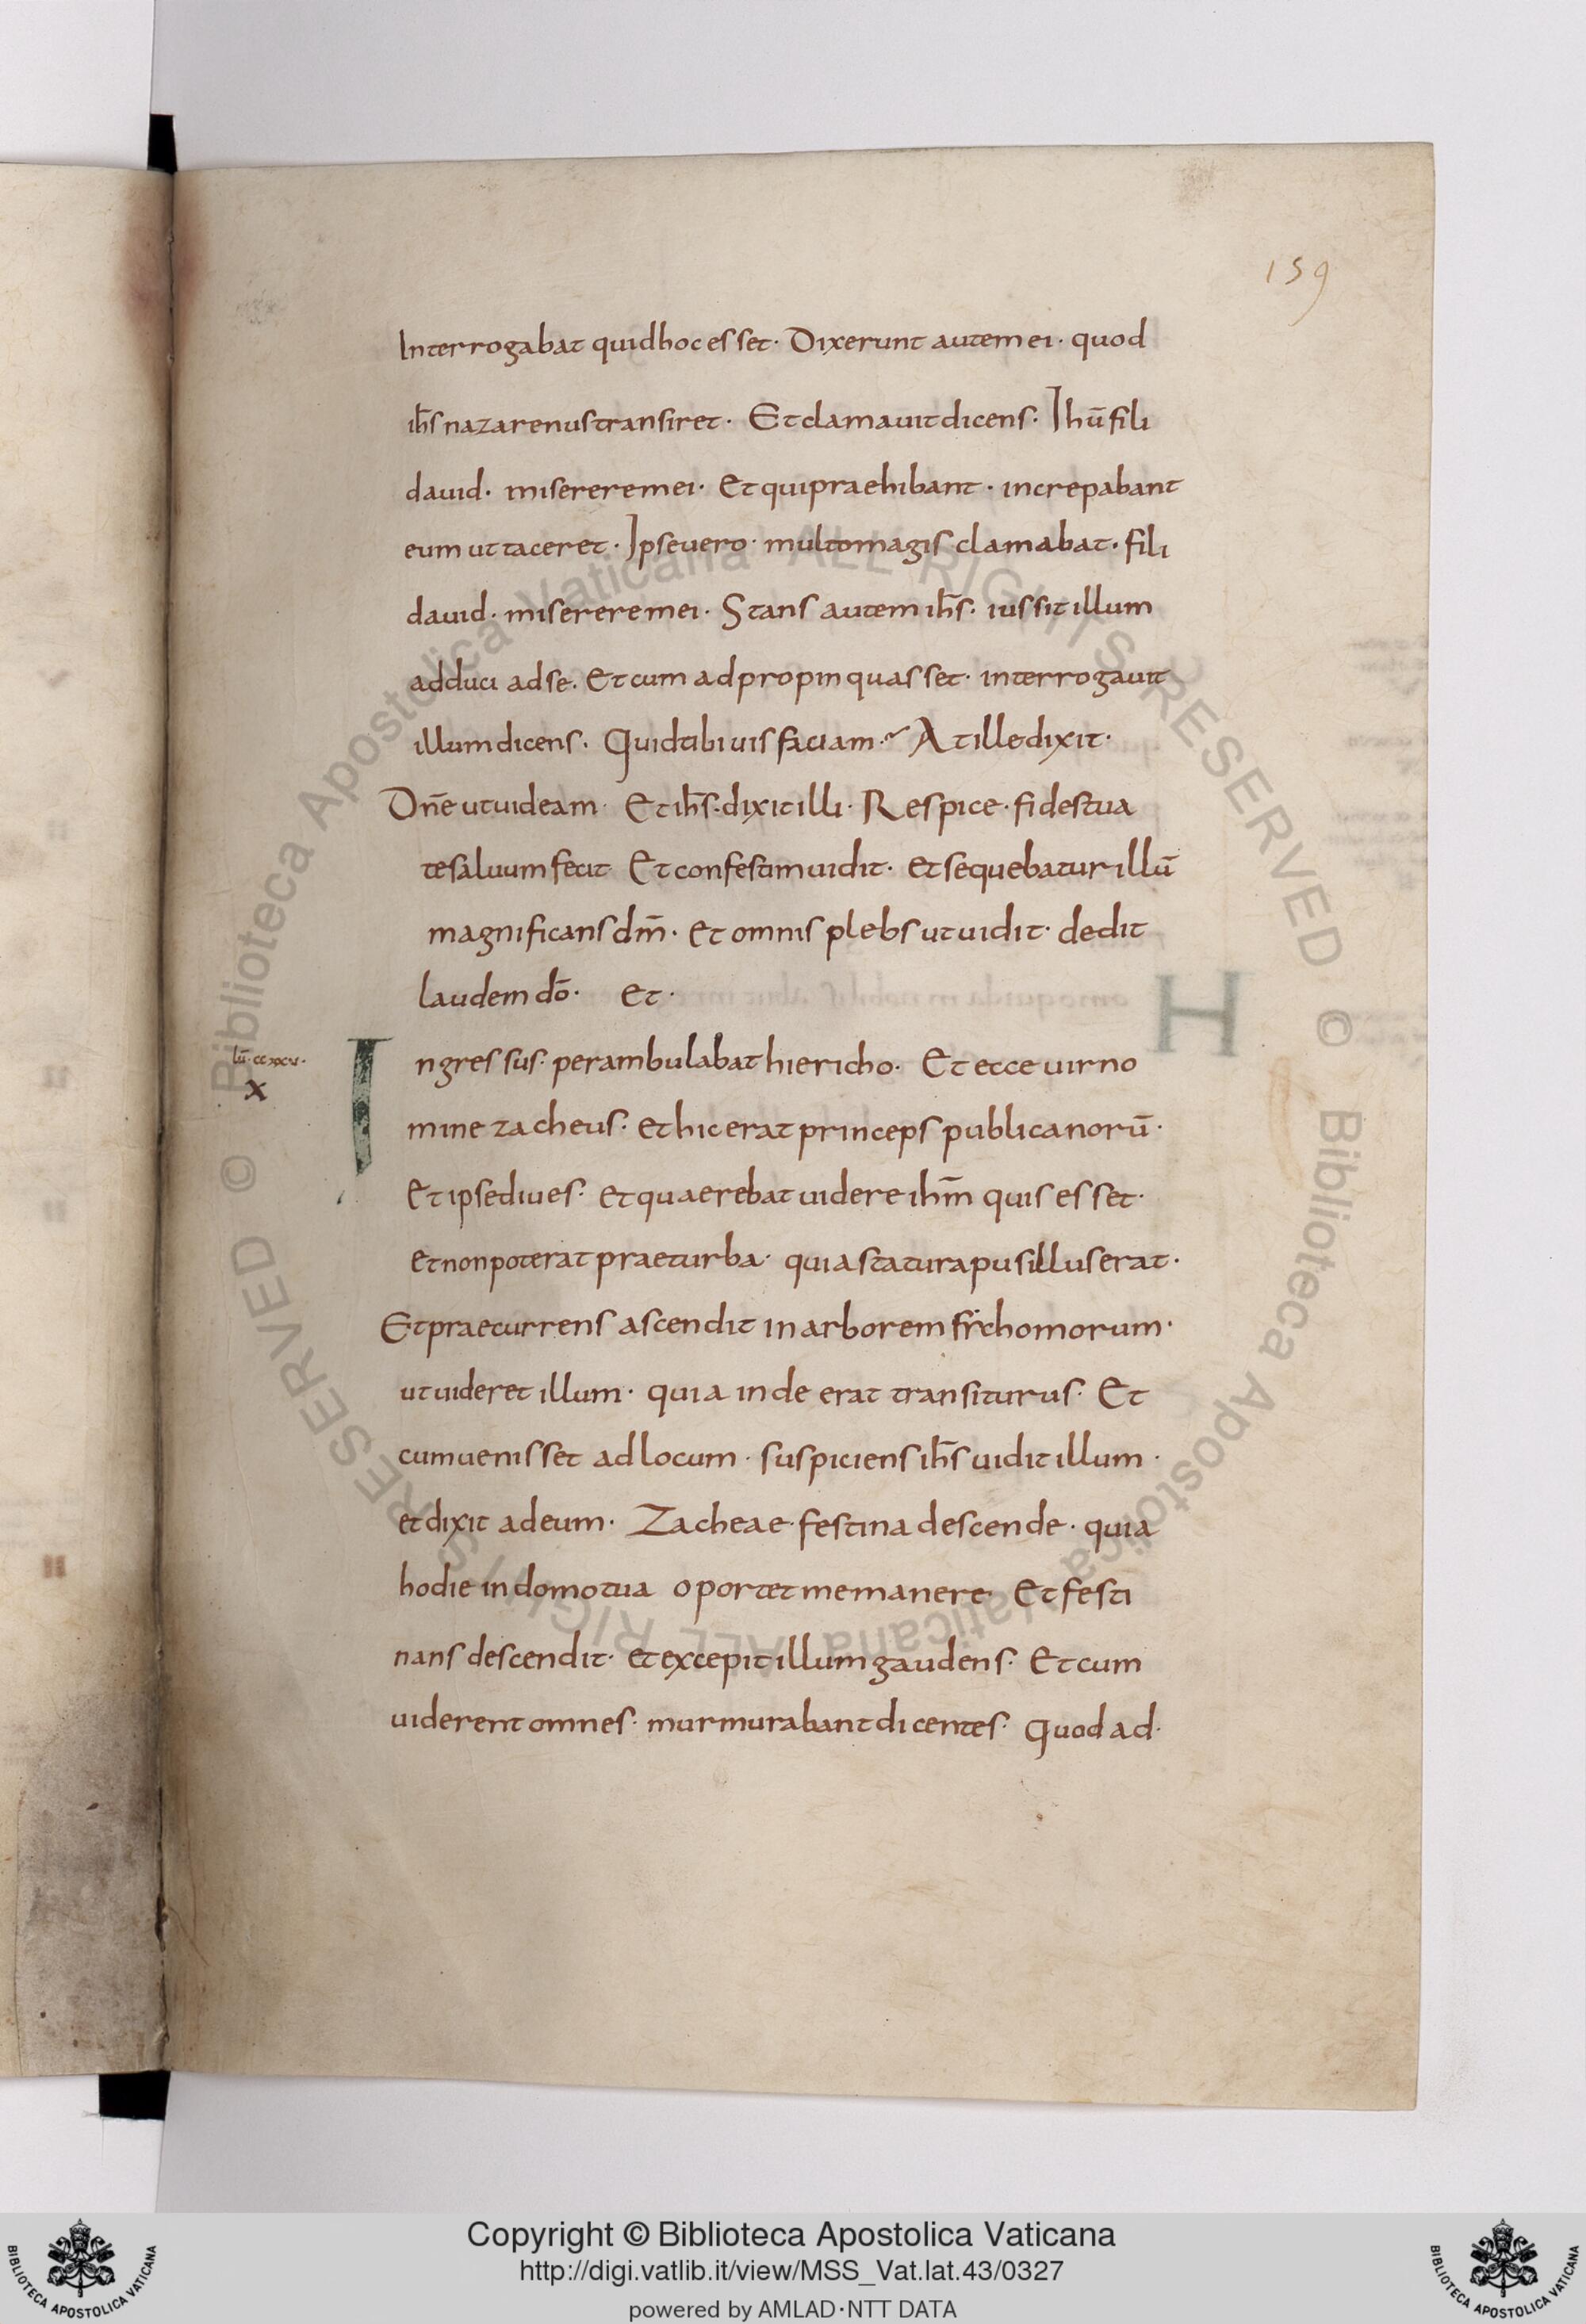 159
Interrogabat quid hoc esset· Dixerunt autem ei· quod
ih̄s nazarenus transiret· Et clamauit dicens· Ihū fili
dauid· miserere mei· Et qui praehibant· increpabant
eum ut taceret· Ipse uero· multo magis clamabat· fili
dauid· miserere mei· Stans autem ih̄s· iussit illum
adduci ad se. Et cum adpropinquasset· interrogauit
illum dicens· Quid tibi uis faciam· At ille dixit·
Dn̄e ut uideam· Et ih̄s· dixit illi· Respice· fides tua
te saluum fecit· Et confestim uidit· et sequebatur illū
magnificans dm̄· Et omnis plebs ut uidit· dedit
laudem dō· Et·
lū· ccxxu·
x
Ingressus· perambulabat hiericho· Et ecce uir no
mine zacheus· et hic erat princeps publicanorū·
Et ipse diues· et quaerebat uidere ihm̄ quis esset·
et non poterat prae turba· quia statura pusillus erat·
Et praecurrens ascendit in arborem sychomorum·
ut uideret illum· quia inde erat transiturus· Et
cum uenisset ad locum· suspiciens ih̄s uidit illum·
et dixit ad eum· Zacheae· festina descende· quia
hodie in domo tua oportet me manere· Et festi
nans descendit· et excepit illum gaudens· Et cum
uiderent omnes· murmurabant dicentes· Quod ad·
Copyright © Biblioteca Apostolica Vaticana
http://digi.vatlib.it/view/MSS_Vat.lat.43/0327
powered by AMLAD·NTT DATA
BIBLIOTECA APOSTOLICA VATICANA
BIBLIOTECA APOSTOLICA VATICANA
© Biblioteca Apostolica Vaticana ALL RIGHTS RESERVED © Biblioteca Apostolica Vaticana ALL RIGHTS RESERVED